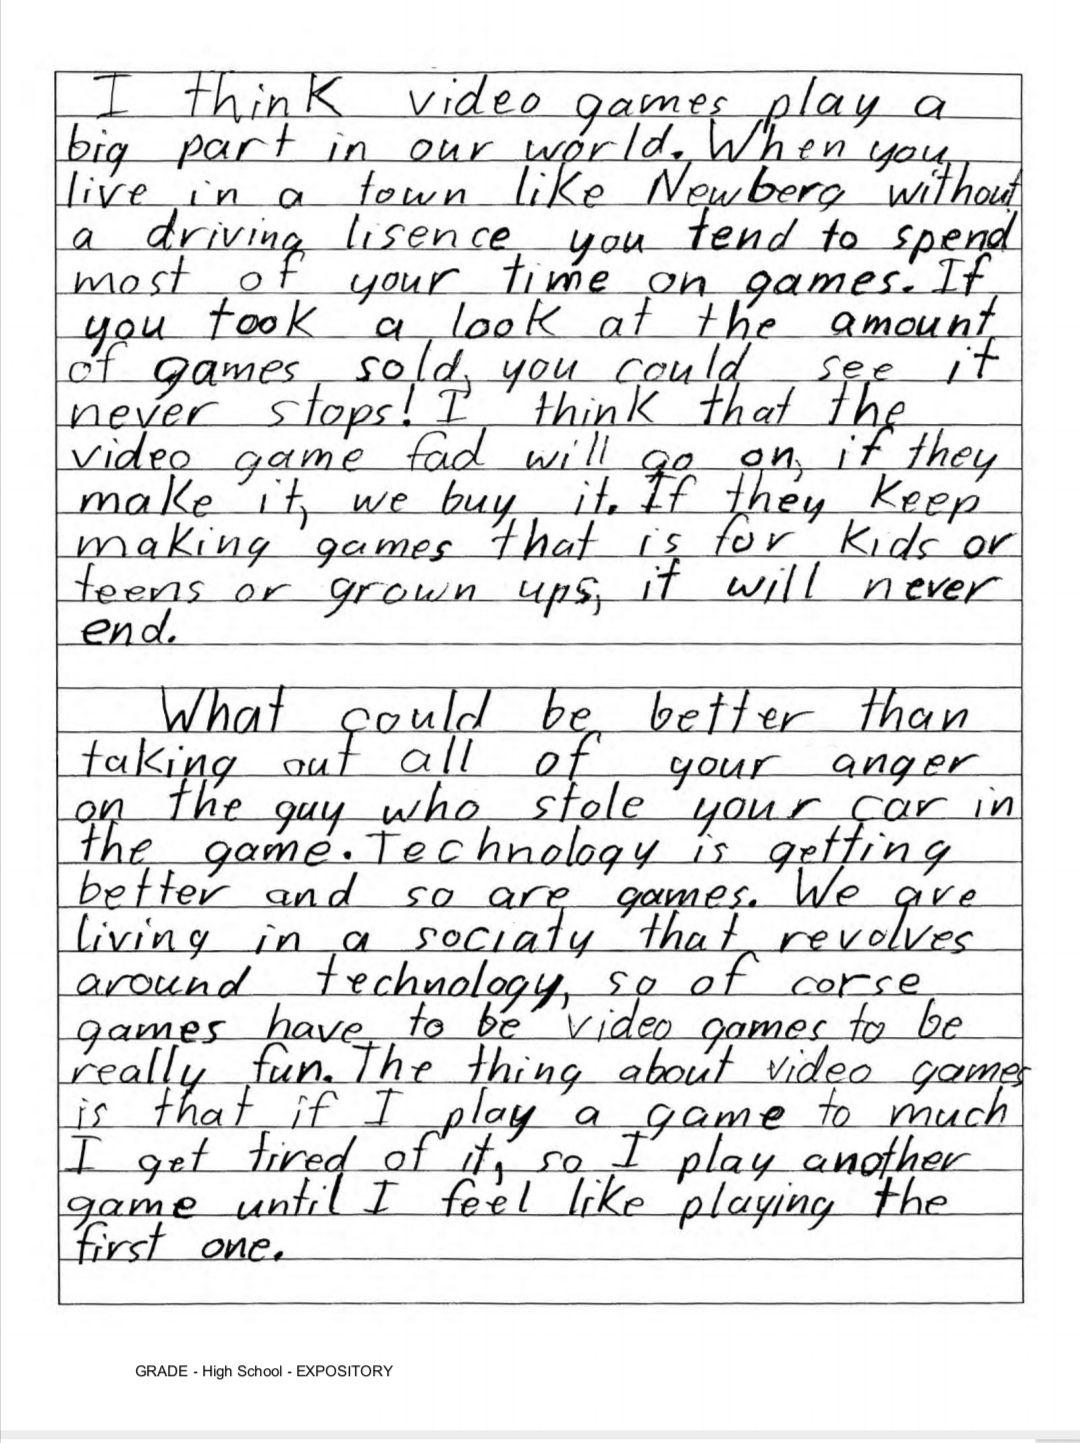 I think video games play a
big part in our world. When you
live in a town like Newberg without
a driving lisence you tend to spend
most of your time on games. If
you took a look at the amount
of games sold, you could see it
never stops! I think that the
video game fad will go on, if they
make it, we buy it. If they keep
making games that is for kids or
teens or grown ups, it will never
end.
What could be better than
taking out all of your anger
on the guy who stole your car in
the game. Technology is getting
better and so are games. We are
living in a sociaty that revolves
around technology, so of corse
games have to be video games to be
really fun. The thing about video games
is that if I play a game to much
I get tired of it, so I play another
game until I feel like playing the
first one.
GRADE - High School - EXPOSITORY